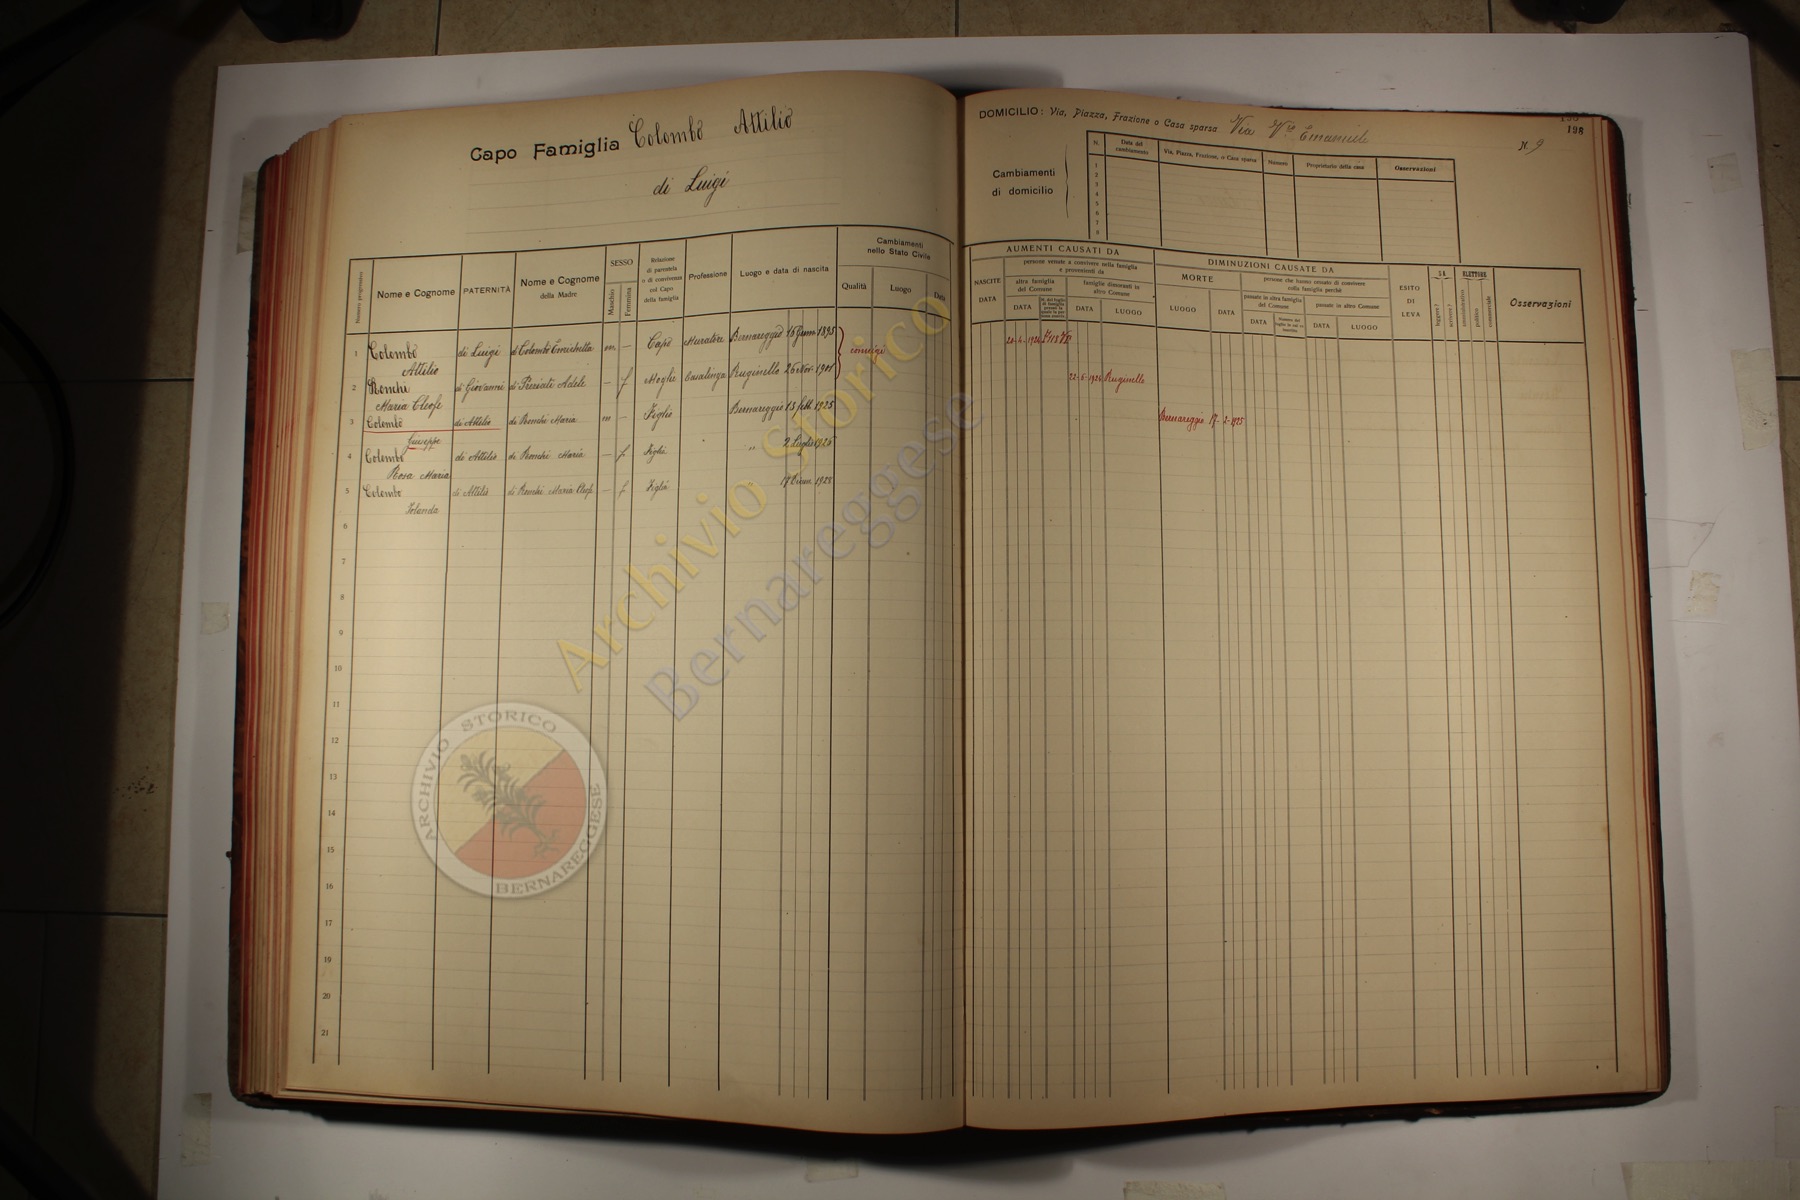 Capo Famiglia Colombo Attilio
di Luigi
Numero progressivo
Nome e Cognome
PATERNITÀ
Nome e Cognome
della Madre
SESSO
Maschio
Femmina
Relazione
di parentela
o di convivenza
col Capo
della famiglia
Professione
Luogo e data di nascita
Cambiamenti
nello Stato Civile
Qualità
Luogo
Data
1 Colombo di Luigi di Colombo m. — Capo Muratore Bernareggio 1895
Attilio
coniugi
2 Ronchi di Giovanni di Adele — f Moglie Casalinga Ruginello 26 Nov. 1901
Maria Cleofe
3 Colombo di Attilio di Ronchi Maria m — Figlio Bernareggio 13 febb. 1925
Giuseppe
4 Colombo di Attilio di Ronchi Maria — f. Figlia " 2 Luglio
Rosa Maria
5 Colombo di Attilio di Ronchi Maria Cleof. — f. Figlia " 1928
Iolanda
6
7
8
9
10
11
12
13
14
15
16
17
18
19
20
21
DOMICILIO: Via, Piazza, Frazione o Casa sparsa Via V.rio Emanuele
198
N. 9
Cambiamenti
di domicilio
N.
Data del
cambiamento
Via, Piazza, Frazione, o Casa sparsa
Numero
Proprietario della casa
Osservazioni
1
2
3
4
5
6
7
8
AUMENTI CAUSATI DA
NASCITE
DATA
persone venute a convivere nella famiglia
e provenienti da
altra famiglia
del Comune
famiglie dimoranti in
altro Comune
DATA
DATA
LUOGO
DIMINUZIONI CAUSATE DA
MORTE
LUOGO
DATA
persone che hanno cessato di convivere
colla famiglia perchè
passate in altra famiglia
del Comune
passate in altro Comune
DATA
DATA
LUOGO
ESITO
DI
LEVA
SA
leggere?
scrivere?
ELETTORE
amministrativo
politico
commerciale
Osservazioni
Ruginello
Bernareggio 17-2-1925
Archivio Storico
Bernareggese
ARCHIVIO STORICO
BERNAREGGESE